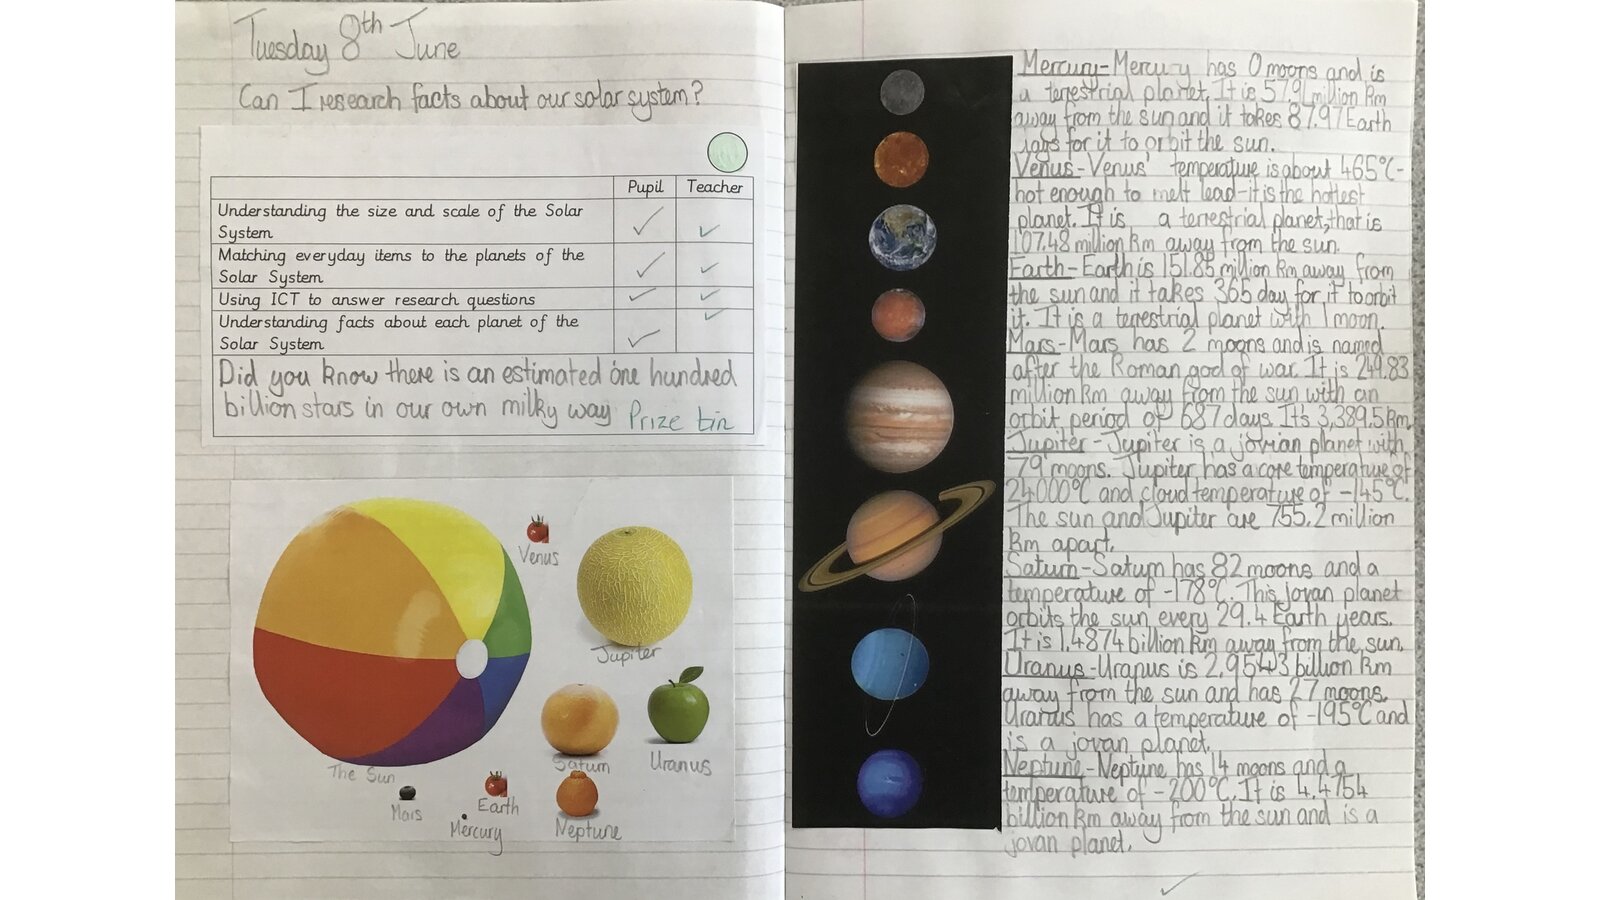 Tuesday 8th June
Can I research facts about our solar system?
Pupil Teacher
Understanding the size and scale of the Solar
System
Matching everyday items to the planets of the
Solar System
Using ICT to answer research questions
Understanding facts about each planet of the
Solar System
Did you know there is an estimated one hundred
billion stars in our own milky way
Prize tin
Venus
Jupiter
Saturn
Uranus
The Sun
Mars
Earth
Mercury
Neptune
Mercury-Mercury has 0 moons and is
a terrestrial planet. It is 57.91 million km
away from the sun and it takes 87.97 Earth
days for it to orbit the sun.
Venus-Venus' temperature is about 465°C-
hot enough to melt lead-it is the hottest
planet. It is a terrestrial planet, that is
107.48 million km away from the sun.
Earth-Earth is 151.85 million km away from
the sun and it takes 365 day for it to orbit
it. It is a terrestrial planet with 1 moon.
Mars-Mars has 2 moons and is named
after the Roman god of war. It is 249.83
million km away from the sun with an
orbit period of 687 days. It's 3,389.5 km.
Jupiter-Jupiter is a jovian planet with
79 moons. Jupiter has a core temperature of
24000°C and cloud temperature of -145°C.
The sun and Jupiter are 755.2 million
km apart.
Saturn-Saturn has 82 moons and a
temperature of -178°C. This jovan planet
orbits the sun every 29.4 Earth years.
It is 1.4874 billion km away from the sun.
Uranus-Uranus is billion km
away from the sun and has 27 moons.
Uranus has a temperature of -195°C and
is a jovan planet.
Neptune-Neptune has 14 moons and a
temperature of -200°C. It is 4.4754
billion km away from the sun and is a
jovan planet.